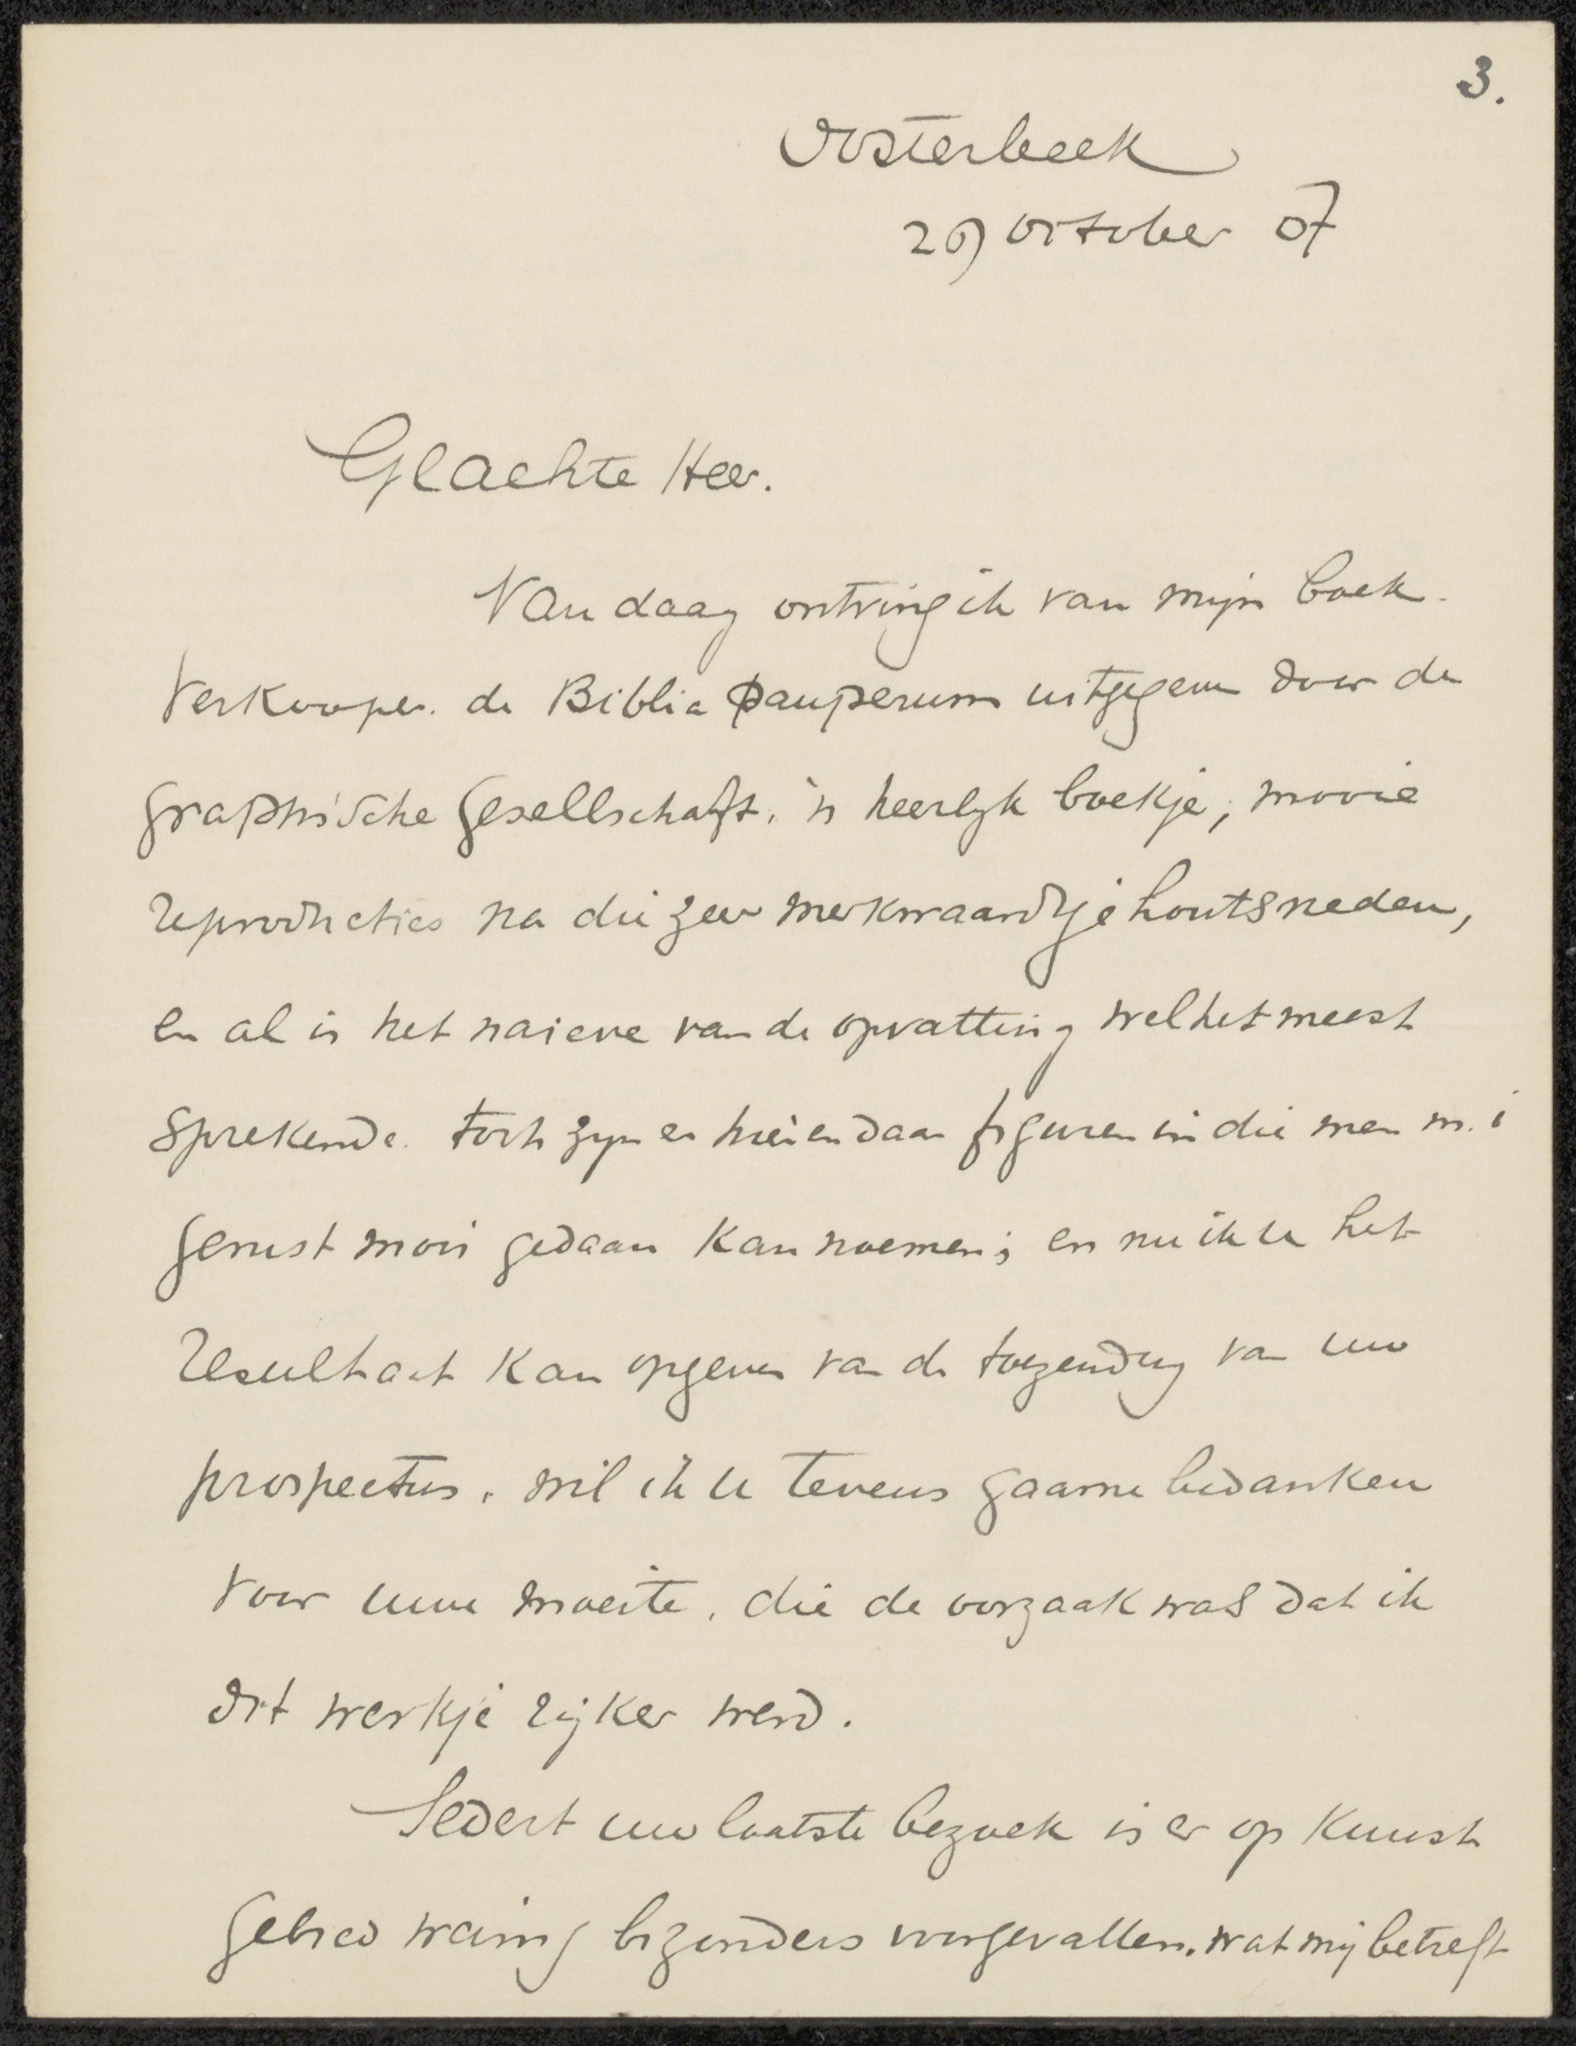 3.
Oosterbeek
29 October 07
Geachte Heer.
Vandaag ontving ik van mijn boek-
verkooper. de Biblia Pauperum uitgegeven door de
graphische Gesellschaft. 'n heerlijk boekje, mooie
reproducties na die zeer merkwaardige houtsneden,
en al is het naieve van de opvatting wel het meest
sprekende. toch zijn er hier en daar figuren in die men m. i
gerust mooi gedaan kan noemen; en nu ik u het
resultaat kan opgeven van de toezending van uw
prospectus. wil ik u tevens gaarne bedanken
voor uwe moeite. die de oorzaak was dat ik
dit werkje rijker werd.
Sedert uw laatste bezoek is er op kunst
gebied weinig bizonders voorgevallen. wat mij betreft